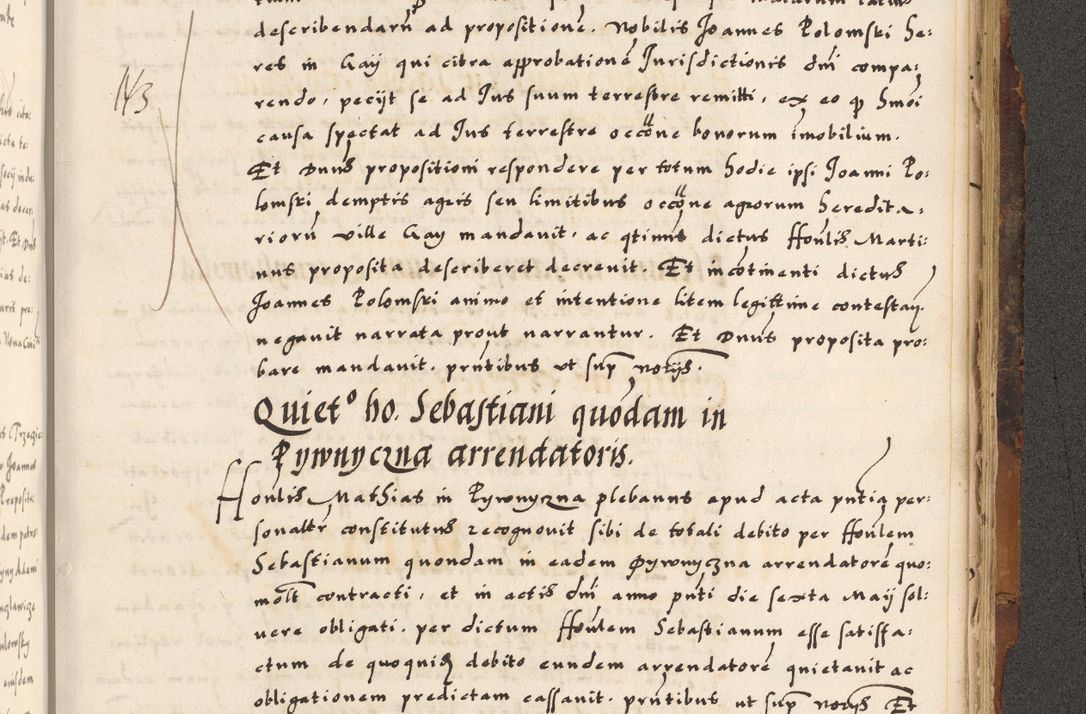 describendarū ad propositionē. Nobilis Joannes Polomski he:
res in Gaij qui citra approbationē Jurisdictionis dnī compa:
rendo, pecijt se ad Jus suum terrestre remitti, ex eo qͥ hmōi
causa spectat ad Jus terrestre occōne bonorum imobilium.
Et Dnus propositioni respondere per totum hodie ipsi Joanni Po:
lomski demptis agris seu limitibus occōne agrorum heredita:
riorū ville Gay mandauit, ac qtinus dictus Hōnlis Marti:
nus proposita describeret decreuit. Et incōtinenti dictus
Joannes Polomski animo et intentione litem legittime contestan
negauit narrata prout narrantur. Et Dnus proposita pro:
bare mandauit. prntibus ut sup notijs.
143
Quietº ho. Sebastiani quōdam in
Pywnyczna arrendatoris.
Honlis Mathias in Pywnyczna plebanus apud acta pntia per:
sonalr constitutus recognouit sibi de totali debito per Honlem
Sebastianum quondam in eadem Pywnyczna arrendatorē quo:
mōlt contracti, et in actis dnī anno pnti die sexta Maij sol:
uere obligati. per dictum Honlem Sebastianum esse satisfa:
ctum de quoquis debito eundem arrendatorē quietauit ac
obligationem predictam cassauit. prntibus ut sup notijs Et